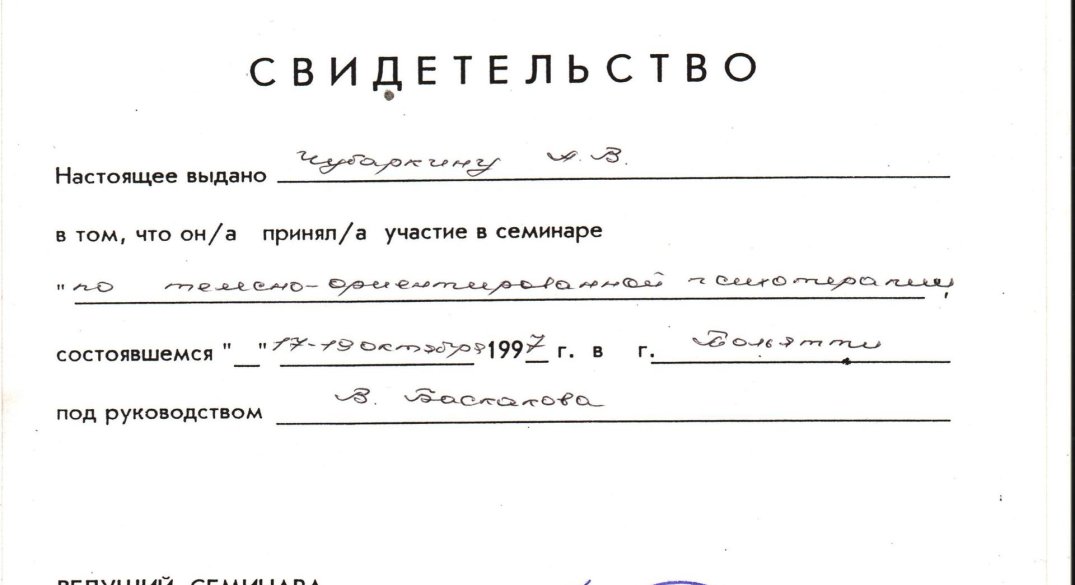 СВИДЕТЕЛЬСТВО
Настоящее выдано Чубаркину А.В.
в том, что он/а принял/а участие в семинаре
"по телесно-ориентированной психотерапии"
состоявшемся " " 17-19 октября 1997 г. в г. Тольятти
под руководством В. Баскакова
ВЕДУЩИЙ СЕМИНАРА